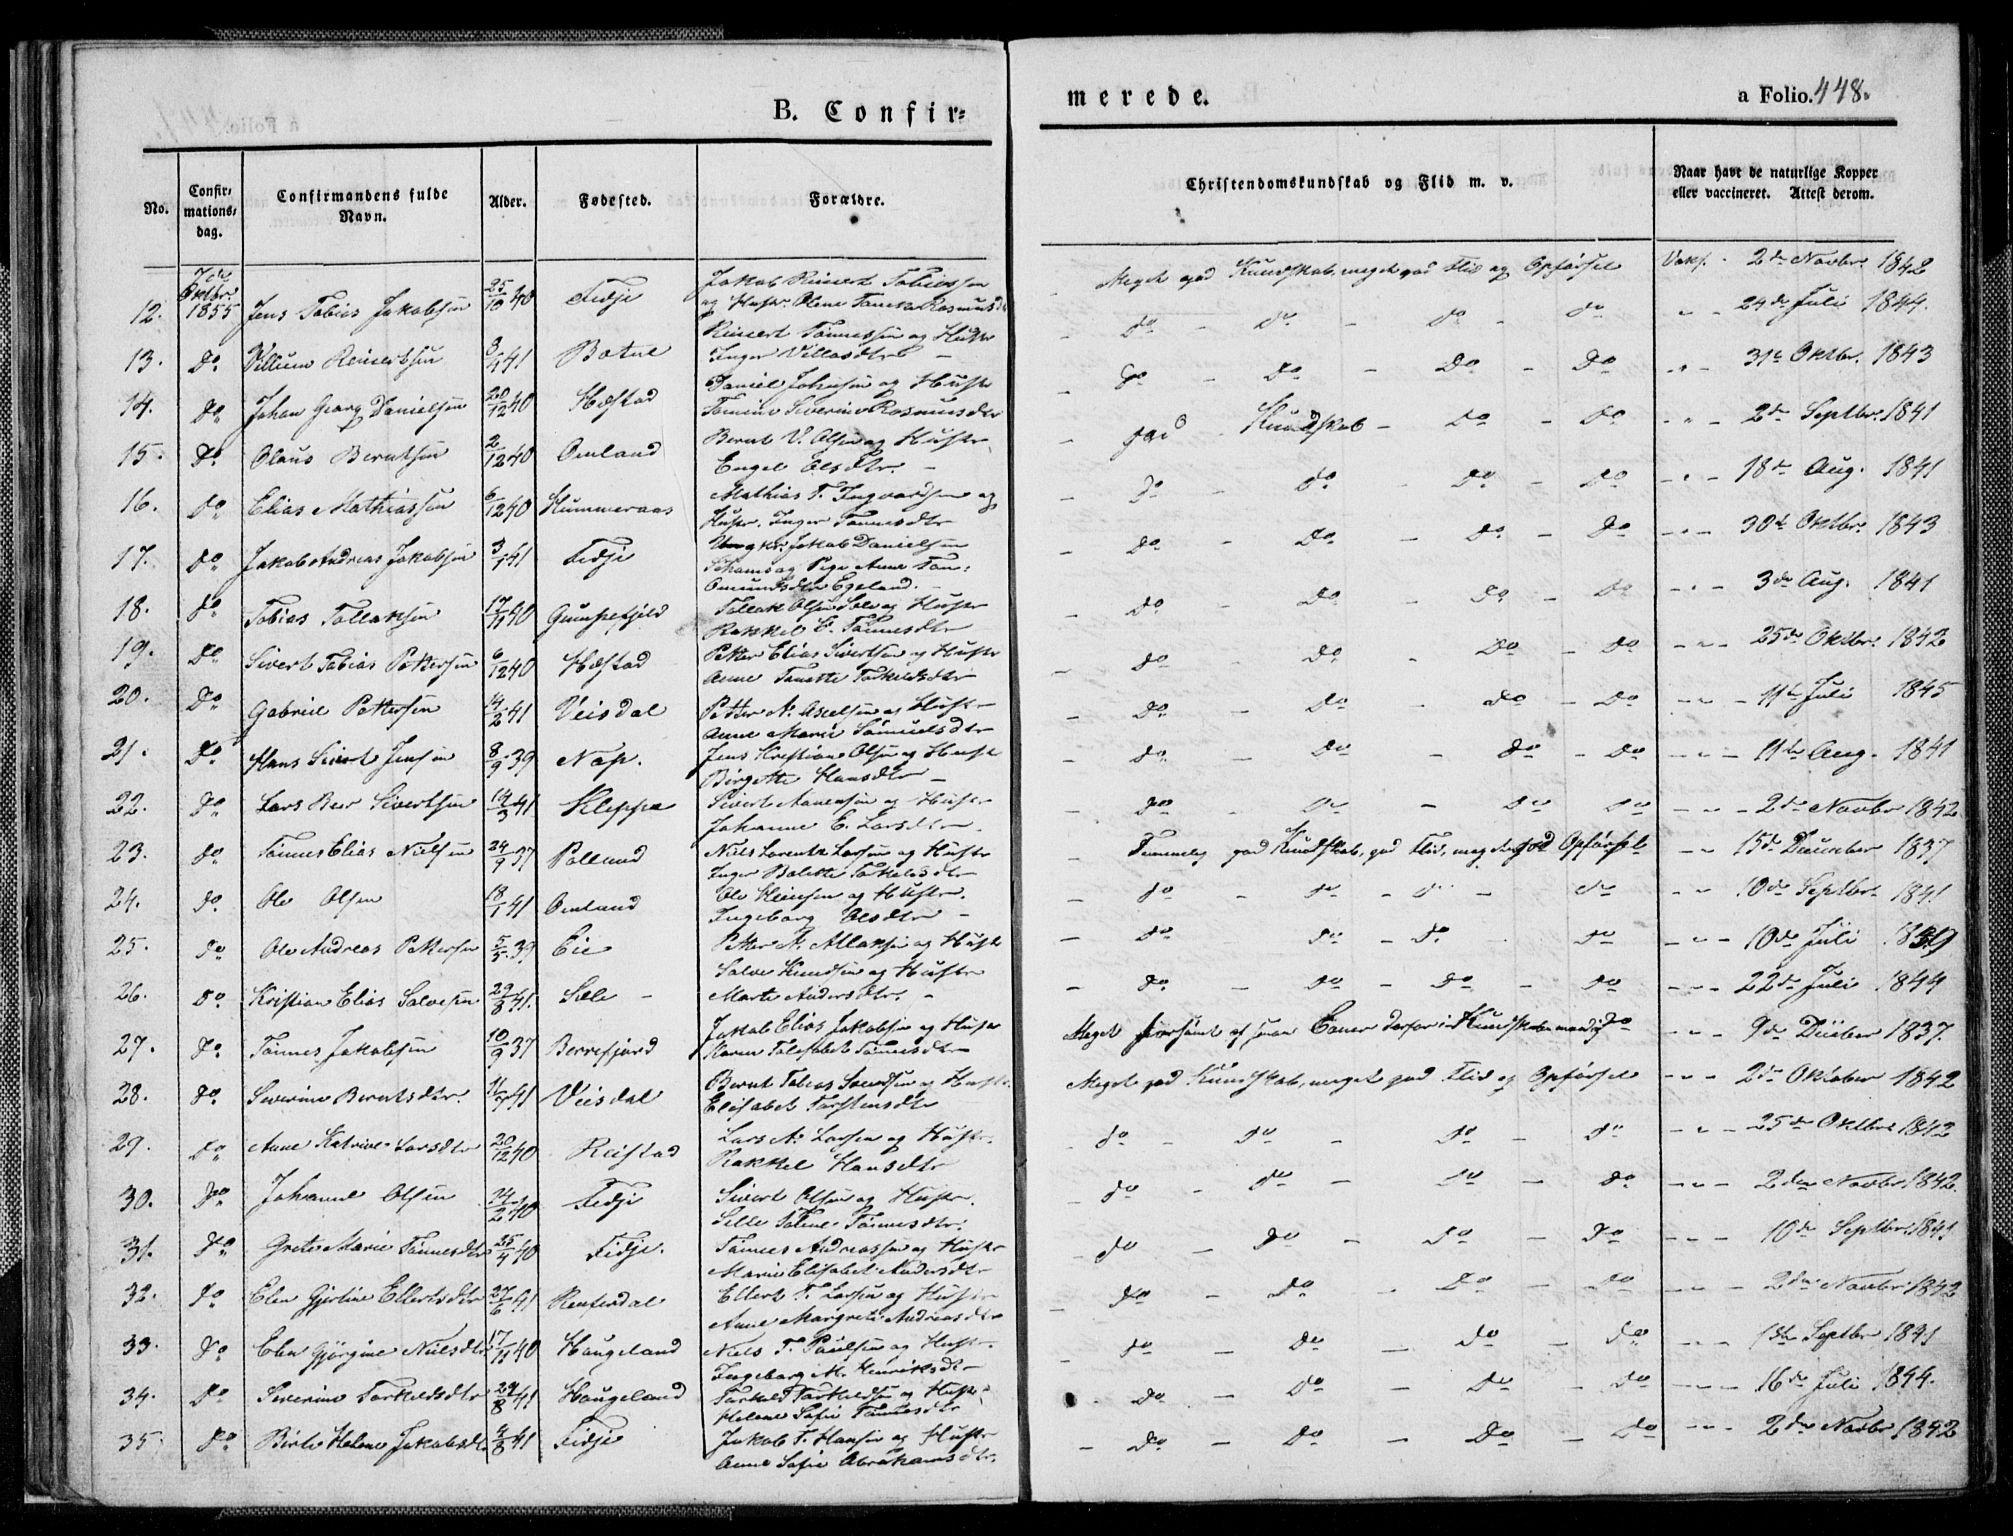 B. Confir=
merede.
a Folio. 448.
No.
Confir=
mations=
dag.
Confirmandens fulde
Navn.
Alder.
Fødested.
Forældre.
Christendomskundskab og Flid m. v.
Naar havt de naturlige Kopper
eller vaccineret. Attest derom.
7de Oktbr. 1855
12. Jens Tobias Jakobsen 25/10 40 Fidje Jakob Reinert Tobiassen og Hustr. Olene Rasmusd. Meget god Kundskab, meget god Flid og Opførsel Vaks. 2de Novbr. 1842
13. Do Villum Reinertsen 3/1 41 Botne Reinert Tønnessen og Hustr Inger Villasdtr - Do - Do - Do - Do - " - 24de Juli 1844.
14. Do Johan Georg Danielsen 20/12 40 Hæstad Daniel Johnsen og Hustr Severine Rasmusdtr - Do - Do - Do - Do - " - 31te Oktbr. 1843
15. Do Olaus Berntsen 2/12 40 Omland Bernt V. Olsen og Hustr. Engel Olsdtr. - god Kundskab - Do - Do - " - 2de Septbr. 1841
16. Do Elias Mathiassen 6/12 40 Hummeraas Mathias T. Ingvardsen og Hustr. Inger Tønnesdtr - Do - Do - Do - Do - " - 18de Aug. 1841
17. Do Jakob Andreas Jakobsen 3/1 41 Fidje Ungkr. Jakob Danielsen og Pige Anne Omundsdtr Egeland. - Do - Do - Do - Do - " - 30te Oktbr. 1843
18. Do Tobias Tollaksen 17/11 40 Gumpefjeld Tollak Olsen og Hustr Rakkel E. Tønnesdtr - Do - Do - Do - Do - " - 3de Aug. 1841
19. Do Sivert Tobias Pettersen 6/12 40 Hæstad Petter Elias Sivertsen og Hustr Anne Tonette Torkeldsdtr - Do - Do - Do - Do - " - 25de Oktbr. 1842
20. Do Gabriel Pettersen 14/2 41 Veisdal Petter N. Axelsen og Hustr Anne Marie Samuelsdtr - Do - Do - Do - Do - " - 11te Juli 1845
21. Do Hans Sivert Jensen 8/9 39 Nap. Jens Kristian Olsen og Hustr Birgette Hansdtr - Do - Do - Do - Do - " - 11te Aug. 1841
22. Do Lars Beer Sivertsen 14/3 41 Kleppe Sivert Aanensen og Hustr Johanne E. Larsdtr. - Do - Do - Do - Do - " - 2de Novbr 1842.
23. Do Tønnes Elias Nielsen 24/9 37 Pollund Niels Lorentz Larsen og Hustr Inger Bolette Torkelsdtr - Temmelig god Kundskab, god Flid, meget god Opførsel - " - 15de December 1837
24. Do Ole Olsen 18/1 41 Omland Ole Reiersen og Hustr. Ingeborg Olsdtr - Do - Do - Do - Do - " - 10de Septbr. 1841
25. Do Ole Andreas Pettersen 5/5 39 Eie Petter N. Atlaksen og Hustr - Do - Do - Do - Do - " - 10de Juli 1839
26. Do Kristian Elias Salvesen 29/8 41. Sele - Salve Knudsen og Hustr Marte Andersdtr. - Do - Do - Do - Do - " - 22de Juli 1844
27. Do Tønnes Jakobsen 10/9 37 Berrefjord Jakob Elias Jakobsen og Hustr Karen Tønnesdtr Meget forsømt af sine derfor i Kundskaben Do - " - 9de Decber 1837.
28. Do Severine Berntsdtr. 11/7 41 Veisdal Bernt Tobias Svendsen og Hustr. Elisabet Torstensdtr Meget god Kundskab, meget god Flid og Opførsel - " - 2de Oktober 1842
29. Do Anne Katrine Larsdtr 20/12 40 Reistad Lars A. Larsen og Hustr. Rakkel Hansdtr - Do - Do - Do - Do - " - 25de Oktbr 1842
30. Do Johanne Olsen 24/2 40 Fidje Sivert Olsen og Hustr. Sille Tønnesdtr. - Do - Do - Do - Do - " - 2den Novbr. 1842.
31. Do Grete Marie Tønnesdtr 25/4 40 Fidje. Tønnes Andreassen og Hustr Maren Elisabet Andersdtr - Do - Do - Do - Do - " - 10de Septbr. 1841
32. Do Elen Gjertine Ellertsdtr 27/6 41 Refsdal Ellert T. Larsen og Hustr Anne Margrete Andreasdtr - Do - Do - Do - Do - " - 2den Novbr 1842
33. Do Elen Gjørgine Nielsdtr 17/11 40 Haugeland Niels T. Paulsen og Hustr. Ingeborg M. Henriksdtr - Do - Do - Do - Do - " - 1ste Septbr 1841
34. Do Severine Torkeldsdtr 24/8 41 Haugeland Torkeld Torkeldsen og Hustr Helene Sofie Tønnesdtr - Do - Do - Do - Do - " - 16de Juli 1844.
35. Do Birte Helene Jakobsdtr 4/8 41 Fidje Jakob T. Hansen og Hustr Anne Sofie Abrahamsdtr. - Do - Do - Do - Do - " - 2den Novbr 1842